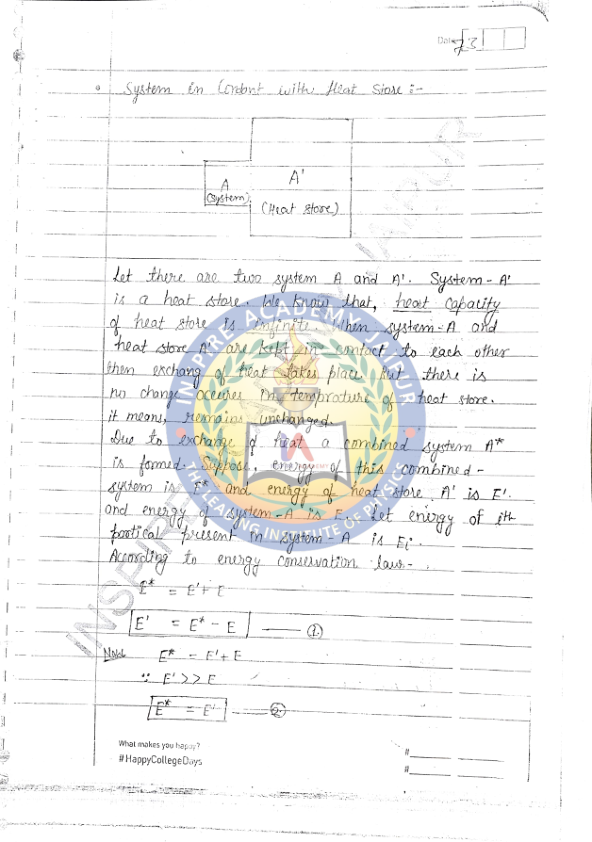 Date 23
System in Contant with Heat Store :-
A'
A
(System)
(Heat store)
Let there are two system A and A'. System-A'
is a heat store. We know that, heat capacity
of heat store is infinite. When system-A and
heat store A' are kept in contact to each other
then exchang of heat takes place but there is
no change occures in temprature of heat store.
it means, remains unchanged.
Due to exchange of heat a combined system A*
is formed. Suppose, energy of this combined -
system is E* and energy of heat store A' is E'.
and energy of system-A is E. Let energy of ith
partical present in system-A is Ei.
According to energy conservation law-
E* = E' + E
E' = E* - E —— (1.)
Now E* = E' + E
∵ E' >> E
E* = E' —— (2.)
What makes you happy?
#HappyCollegeDays
#
#
INSPIRE ACADEMY JAIPUR
THE LEARNING INSTITUTE OF PHYSICS